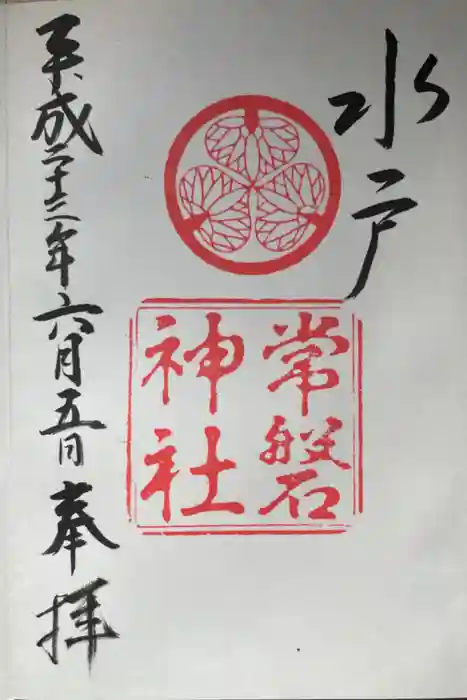 水戸
常磐
神社
平成二十三年六月五日奉拝